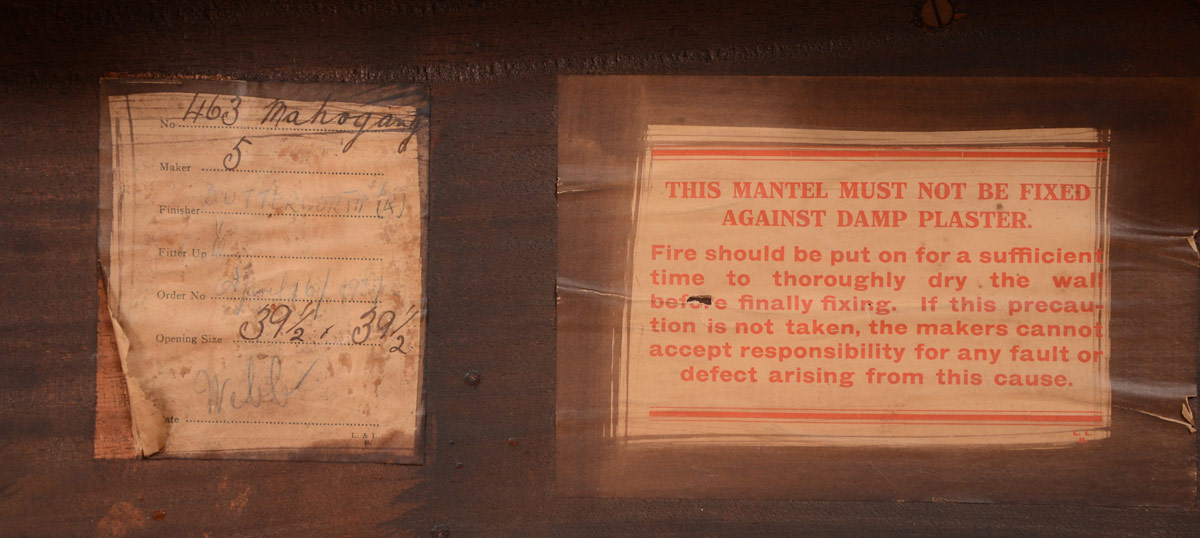 No 463 Mahogany
Maker 5
Finisher BUTTERWORTH (A)
Fitter Up
Order No April 16/
Opening Size 39½ × 39½
Webb
ate
L. & L.
THIS MANTEL MUST NOT BE FIXED
AGAINST DAMP PLASTER.
Fire should be put on for a suffiicient
time to thoroughly dry the wall
before finally fixing. If this precau-
tion is not taken, the makers cannot
accept responsibility for any fault or
defect arising from this cause.